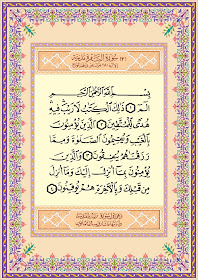 (٢) سُورَةُ البَقَرَةِ مَدَنِيَّة
بِسْمِ اللَّهِ الرَّحْمَٰنِ الرَّحِيمِ
الٓمٓ ۝١ ذَٰلِكَ الْكِتَٰبُ لَا رَيْبَ فِيهِ
هُدًى لِّلْمُتَّقِينَ ۝٢ الَّذِينَ يُؤْمِنُونَ
بِالْغَيْبِ وَيُقِيمُونَ الصَّلَوٰةَ وَمِمَّا
رَزَقْنَٰهُمْ يُنفِقُونَ ۝٣ وَالَّذِينَ
يُؤْمِنُونَ بِمَآ أُنزِلَ إِلَيْكَ وَمَآ أُنزِلَ
مِن قَبْلِكَ وَبِالْءَاخِرَةِ هُمْ يُوقِنُونَ ۝٤